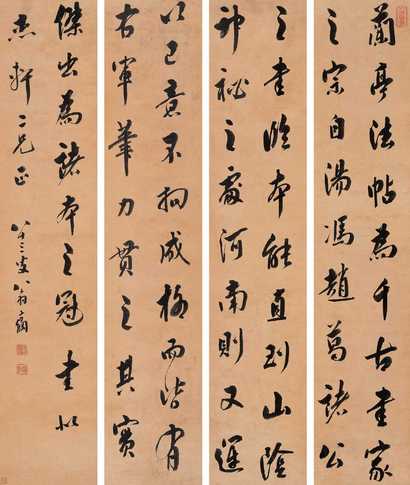 蘭亭法帖為千古書家
之宗自湯馮趙葛諸公
之書臨本能直到山陰
神秘之處河南則又運
以己意不拘成格而皆有
右軍筆力貫之其實
傑出為諸本之冠書似
杰軒二兄正
八十三叟